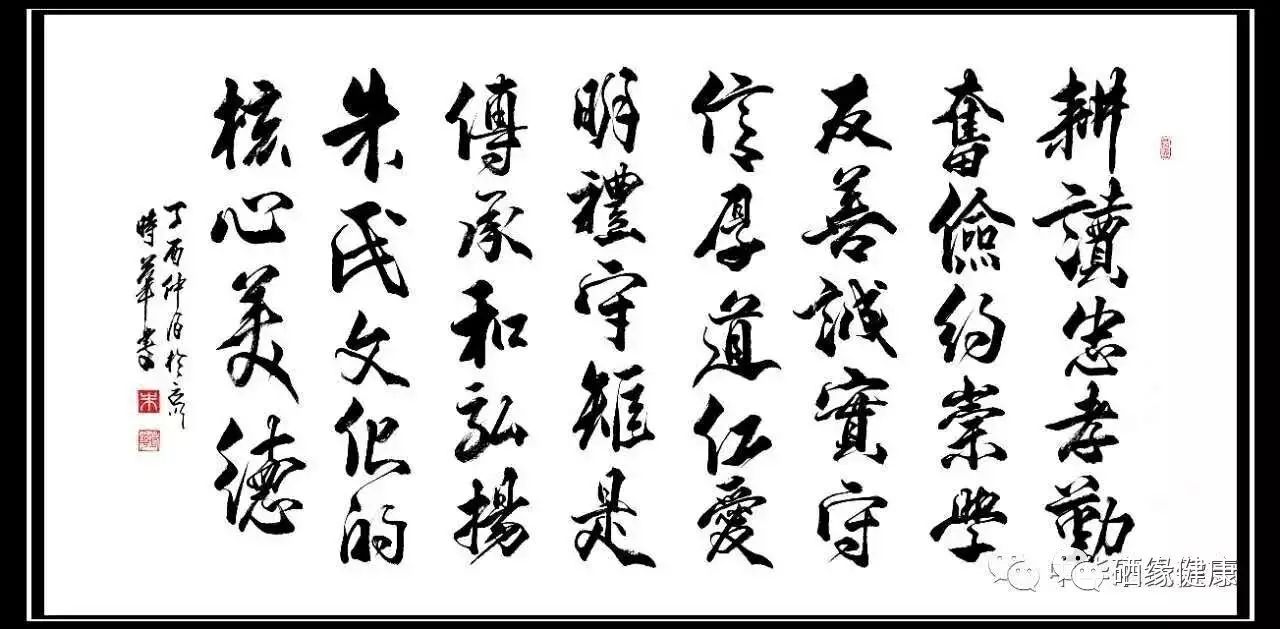 耕讀忠孝勤
奮儉約崇學
友善誠實守
信厚道仁愛
明禮守矩是
傳承和弘揚
朱氏文化的
核心美德
丁酉仲月於京
時華書
朱
硒缘健康